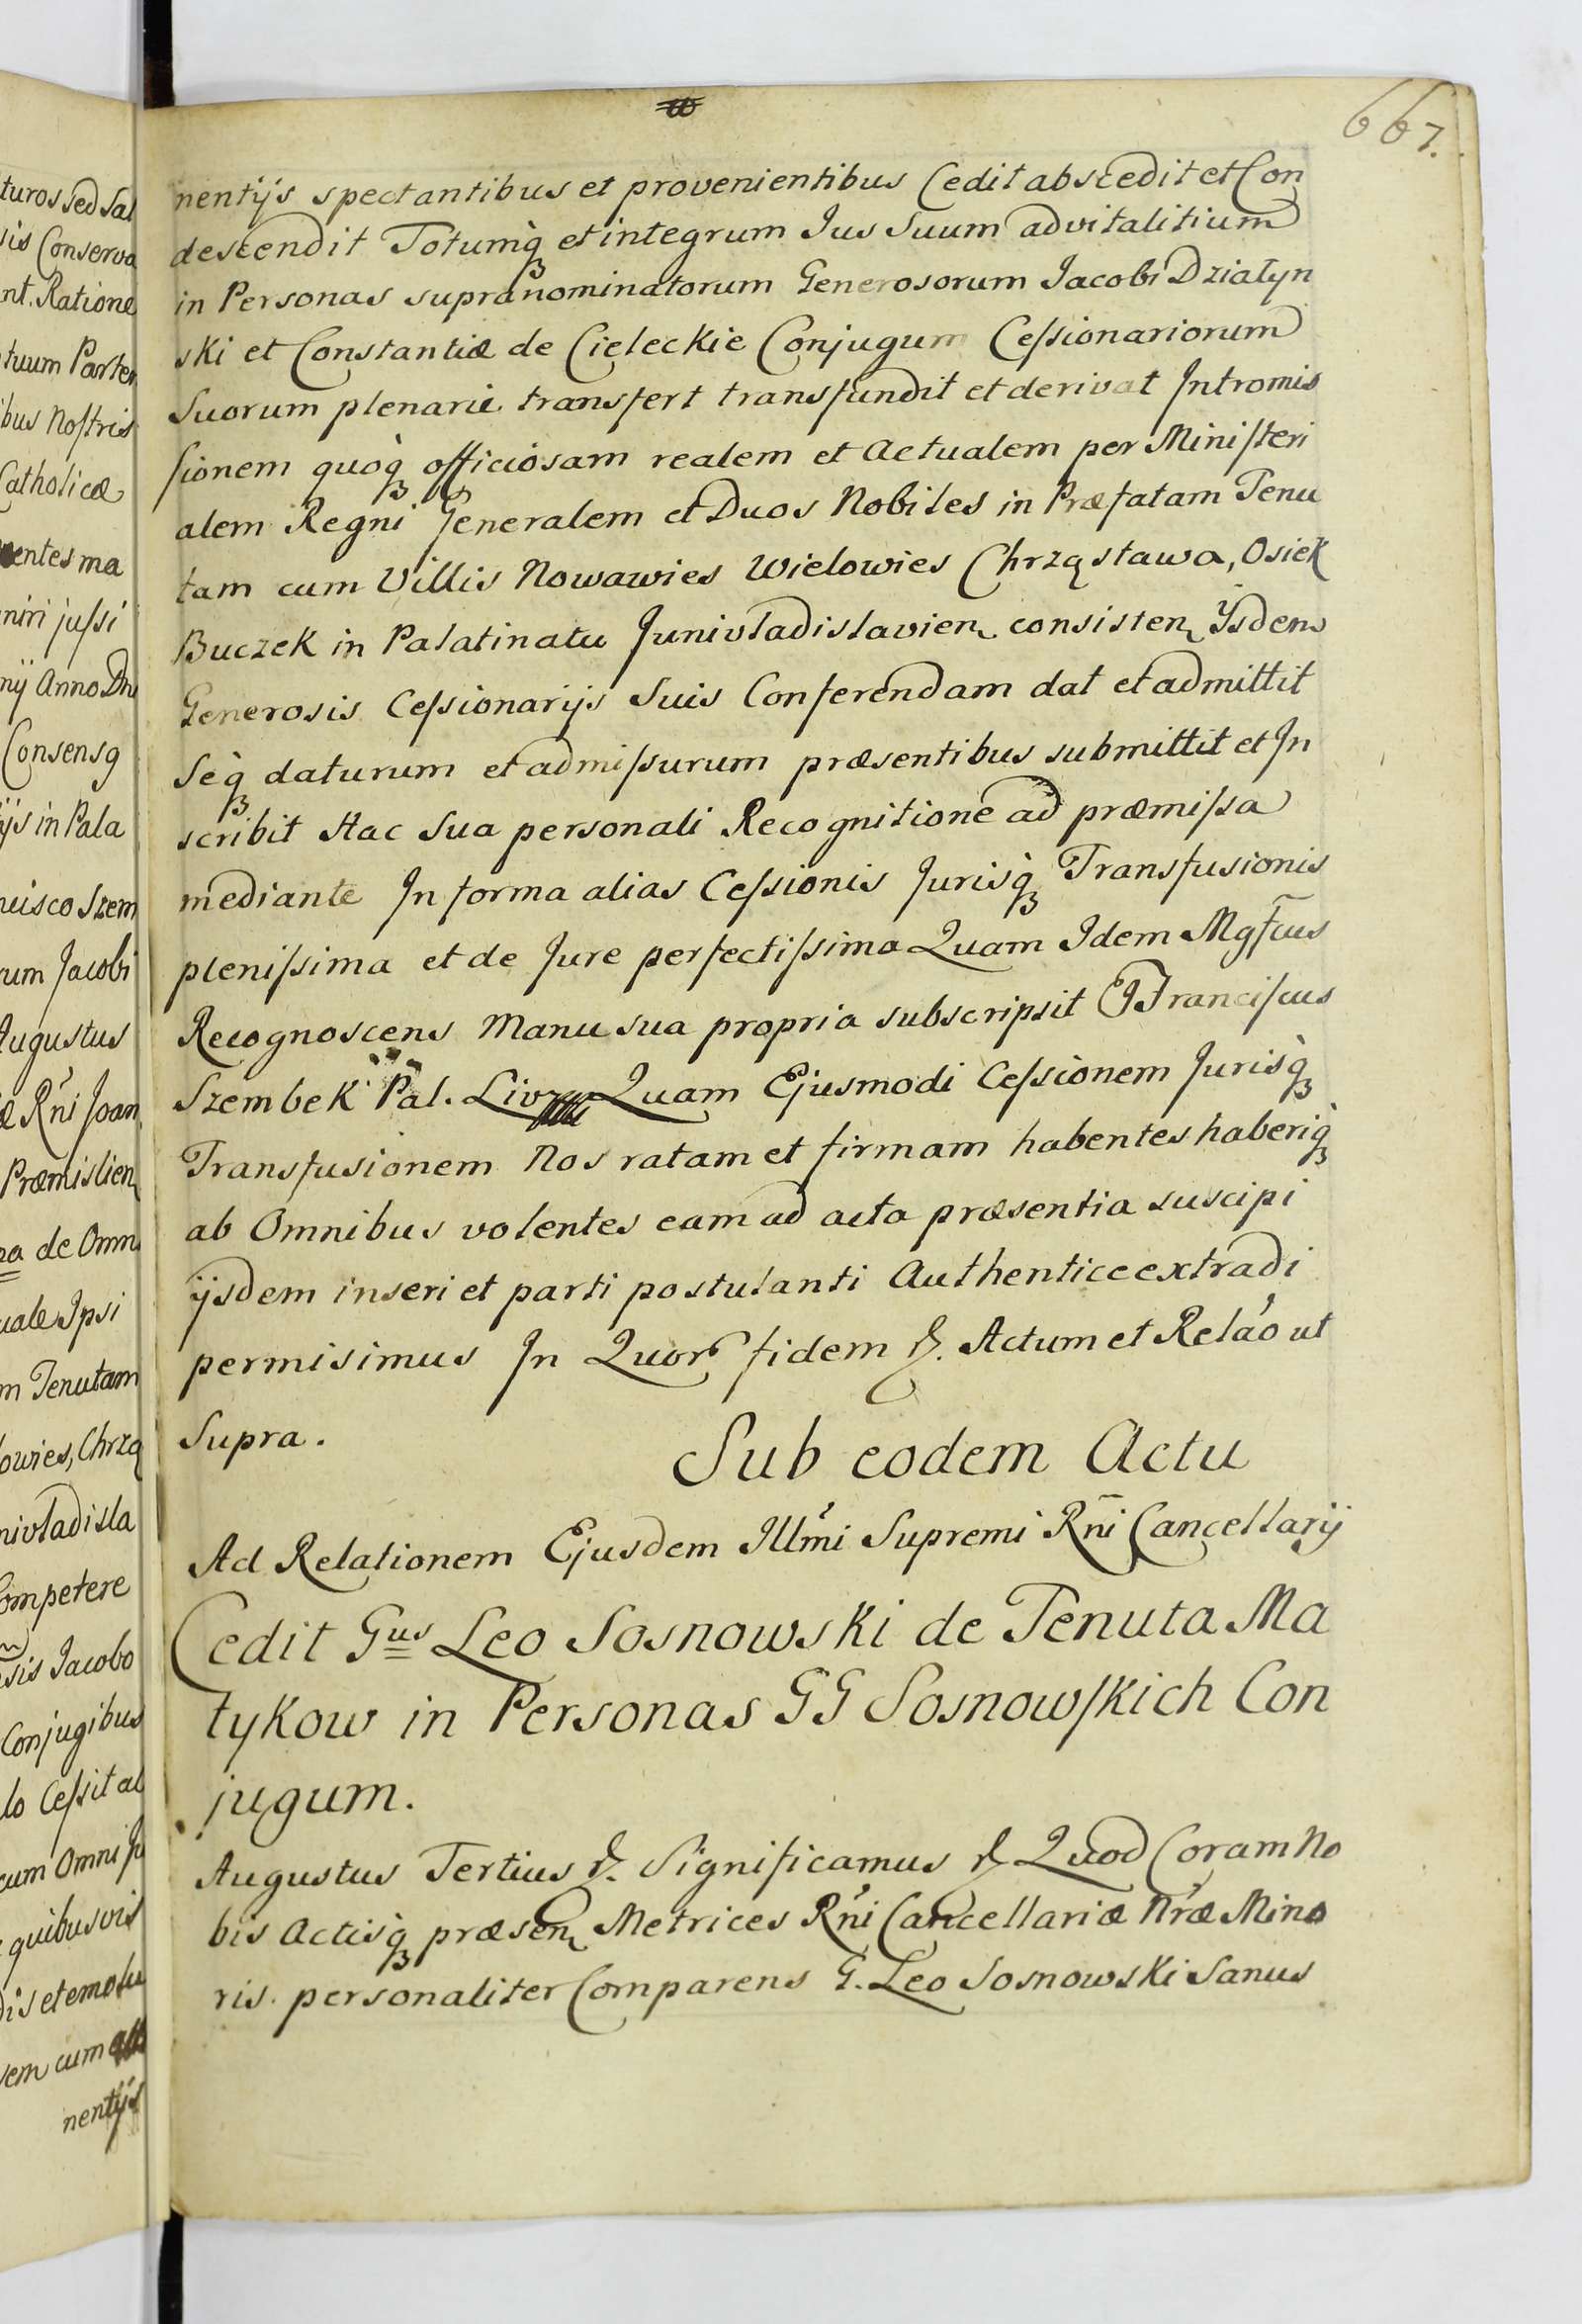 667.
nentijs spectantibus et provenientibus Cedit abscedit et Con
descendit Totumq̀ꝫ et integrum Jus Suum advitalitium
in Personas supranominatorum Generosorum Jacobi Działyn
ski et Constantiæ de Cieleckie Conjugum Ceſsionariorum
Suorum plenarie transfert transfundit et derivat Intromis
ſionem quoq̀ꝫ officiosam realem et Actualem per Miniſteri
alem Regni Generalem et Duos Nobiles in Præfatam Tenu
tam cum Villis Nowawies Wielowies Chrząstawa, Osiek
Buczek in Palatinatu Junivladislavien consisten Ysdem
Generosis Ceſsionarijs Suis Conferendam dat et admittit
Seq̀ꝫ daturum et admiſsurum præsentibus submittit et In
scribit Hac Sua personali Recognitione ad præmiſsa
mediante In forma alias Ceſsionis Jurisq̀ꝫ Transfusionis
pleniſsima et de Jure perfectiſsima Quam Idem Mgfcus
Recognoscens Manu sua propria subscripsit Franciſcus
Szembek Pal. Quam Ejusmodi Ceſsionem Jurisq̀ꝫ
Transfusionem Nos ratam et firmam habentes haberiq̀ꝫ
ab Omnibus volentes eam ad acta præsentia suscipi
ijsdem inseri et parti postulanti Authentice extradi
permisimus In Quor fidem &. Actum et Relao ut
Supra.
Sub eodem Actu
Ad Relationem Ejusdem Illmi Supremi Rni Cancellarij
Cedit Gus Leo Sosnowski de Tenuta Ma
tykow in Personas GG Sosnowſkich Con
jugum.
Augustus Tertius &. Significamus & Quod Coram No
bis Actisq̀ꝫ præsen Metrices Rni Cancellariæ Nræ Mino
ris. personaliter Comparens G. Leo Sosnowski Sanus
turos sed Sal
sis Conserva
nt. Ratione
tuum Parten
ibus Noſtris
Catholicæ
entes ma
niri juſsi
nij Anno Dni
Consensq
ijs in Pala
cisco Szem
rum Jacobi
Augustus
æ Rni Joan
Præmislien
de Omni
uale Ipsi
m Tenutam
lowies, Chrzą
nivladisla
Competere
sis Jacobo
Conjugibus
lo Ceſsit ab
cum Omni Ju
quibusvis
dis et emolu
vem cum
nentijs